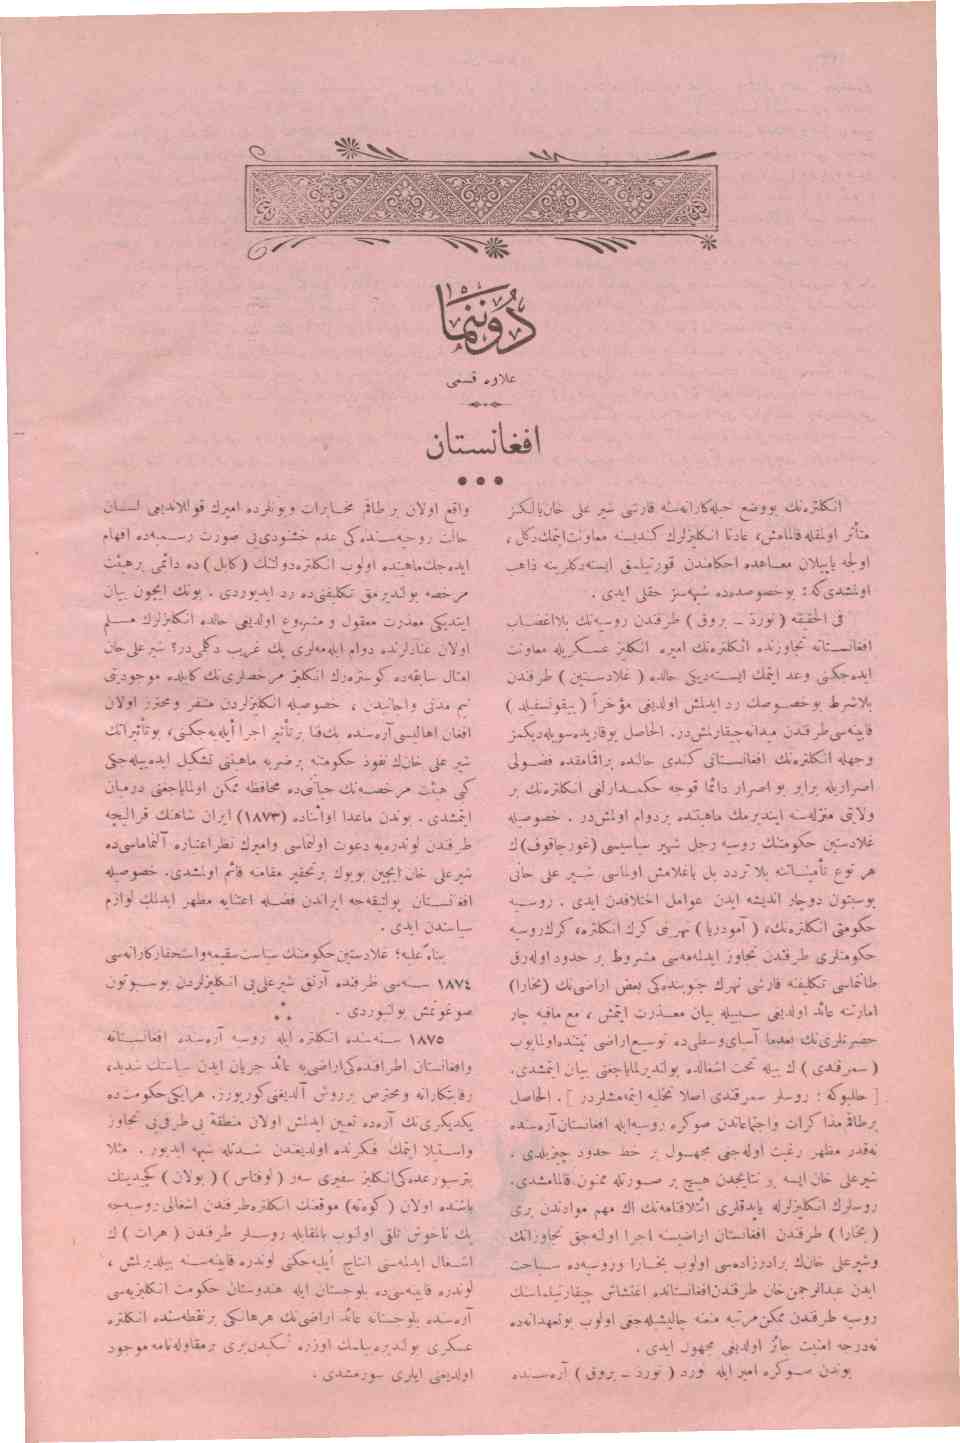 دوننما
علاوه قسمی
افغانستان
انكلتره‌نك بووضع حیله‌كارانه‌سنه قارشی شیر علی خان‌یالكز
متأثر اولمقله‌قالمامش، عادتا انكلیزلرك كندیسنه معاونت‌ایتمك‌دكل ،
اولجه یاپیلان معاهده احكامندن قورتیلمق ایسته‌دكلرینه ذاهب
اولمشدی‌كه : بوخصوصده‌ده شبهه‌سز حقلی ایدی .
فی‌الحقیقه ( نورد ـ بروق ) طرفندن روسیه‌نك بلااغضاب
افغانستانه تجاوزنده انكلتره‌نك امیره انكلیز عسكریله معاونت
ایده‌جكنی وعد ایتمك ایسته‌دیكی حالده ( غلادستین ) طرفندن
بلاشرط بوخصوصك رد ایدلمش اولدیغی مؤخراً ( بیقونسفیلد )
قابینه‌سی‌طرفندن میدانه‌چیقارلمش‌در. الحاصل یوقاریده‌سویله‌دیكمز
وجهله انكلتره‌نك افغانستانی كندی حالنده براقمامقده فضولی
اصراریله برابر بو اصرار دائما قوجه حكمدارلغی انكلتره‌نك بر
ولایتی منزله‌سنه ایندیرمك ماهیتنده بردوام اولمش‌در . خصوصیله
غلادستین حكومتنك روسیه رجل شهیر سیاسیسی (غورچاقوف)ك
هر نوع تأمیناتنه بلا تردد بل باغلامش اولماسی شیر علی خانی
بوسبتون دوچار اندیشه ایدن عوامل اختلافدن ایدی . روسیه
حكومتی انكلتره‌نك، ( آمودریا ) نهرینی كرك انكلتره، كرك‌روسیه
حكومتلری طرفندن تجاوز ایدلمه‌مسی مشروط بر حدود اوله‌رق
طانیماسی تكلیفنه قارشی نهرك جنوبنده‌كی بعض اراضی‌نك (بخارا)
امارتنه عائد اولدیغی سببیله بیان معذرت ایتمش ، مع مافیه چار
حضرتلری‌نك بعدما آسیای‌وسطی‌ده توسیع‌اراضی نیتنده‌اولمایوب
( سمرقندی ) ك بیله تحت اشغالده بولندیرلمایاجغنی بیان ایتمشدی.
[ حالبوكه : روسلر سمرقندی اصلا تخلیه ایتمه‌مشلردر ] . الحاصل
برطاقم مذاكرات واجتماعاتدن صوكره روسیه‌ایله افغانستان‌آره‌سنده
نه‌قدر مظهر رغبت اوله‌جغی مجهول بر خط حدود چیزیلدی .
شیرعلی خان ایسه بو نتایجدن هیچ بر صورتله ممنون قالمامشدی.
روسلرك انكلیزلرله یاپدقلری ائتلافنامه‌نك اك مهم موادندن بری
( بخارا ) طرفندن افغانستان اراضیسنه اجرا اولنه‌جق تجاوزاتك
وشیرعلی خانك برادرزاده‌سی اولوب بخارا وروسیه‌ده سیاحت
ایدن عبدالرحمن‌خان طرفندن‌افغانستانده اغتشاش چیقاریلماسنك
روسیه طرفندن ممكن‌مرتبه منعنه چالیشیله‌جغی اولوب بوتعهداته‌ده
نه‌درجه امنیت جائز اولدیغی مجهول ایدی .
بوندن صوكره امیر ایله لورد ( نورد ـ بروق ) آره‌سنده
واقع اولان بر طاقم مخابرات وبونلرده امیرك قوللاندیغی لسان
حالت روحیه‌سنده‌كی عدم خشنودی‌یی صورت رسمیه‌ده افهام
ایده‌جك‌ماهیتده اولوب انكلتره‌دولتنك (كابل) ده دائمی برهیئت
مرخصه بولندیرمق تكلیفنی‌ده رد ایدیوردی . بونك ایچون بیان
ایتدیكی معذرت معقول و مشروع اولدیغی حالده انكلیزلرك مسلم
اولان عنادلرنده دوام ایله‌مه‌لری پك غریب دكلمی‌در؟ شیرعلی‌خان
امثال سابقه‌ده كوستره‌رك انكلیز مرخصلری‌نك كابلده موجودیتی
نیم مدنی واجانبدن ، خصوصیله انكلیزلردن متنفر ومحترز اولان
افغان اهالیسی‌آره‌سنده پك‌فنا برتأثیر اجرا‌أیله‌یه‌جكنی، بوتأثیراتك
شیر علی خانك نفوذ حكومتنه برضربه ماهیتنی تشكیل ایده‌بیله‌جكی
كبی هیئت مرخصه‌نك حیاتنی‌ده محافظه ممكن اولمایاجغنی درمیان
ایتمشدی . بوندن ماعدا اواثناده (١٨٧٣) ایران شاهنك قرالیچه
طرفندن لوندره‌یه دعوت اولنماسی وامیرك نظر اعتباره آلنماماسی‌ده
شیرعلی خان ایچین بویوك برتحقیر مقامنه قائم اولمشدی. خصوصیله
افغانستان پولتیقه‌جه ایراندن فضله اعتنایه مظهر ایدلمك لوازم
سیاستدن ایدی .
بناءً علیه؛ غلادستین‌حكومتنك سیاست‌سقیمه‌واستحقاركارانه‌سی
١٨٧٤ سنه‌سی ظرفنده آرتق شیرعلی‌یی انكلیزلردن بوسبوتون
صوغوتمش بولنیوردی .
١٨٧٥ سنه‌سنده انكلتره ایله روسیه آره‌سنده افغانستانه
وافغانستان اطرافنده‌كی‌اراضی‌یه عائد جریان ایدن سیاستك شدید،
رقابتكارانه و محترص برروش آلدیغنی‌كوریورز. هرایكی‌حكومت‌ده
یكدیكری‌نك آره‌ده تعیین ایدلمش اولان منطقهٔ بی طرفی‌یی تجاوز
واستیلا ایتمك فكرنده اولدیغندن شدتله شبهه ایدیور . مثلا
پترسبورغده‌كی‌انكلیز سفیری سه‌ر ( لوفتاس ) ( بولان ) كچیدینك
باشنده اولان ( كوه‌ته) موقعنك انكلتره‌طرفندن اشغالی روسیه‌جه
پك ناخوش تلقی اولنوب بالمقابله روسلر طرفندن ( هرات ) ك
اشغال ایدلمه‌سی انتاج أیلیه‌جكنی لوندره قابینه‌سنه بیلدیرلمش ،
لوندره قابینه‌سی‌ده بلوجستان ایله هندوستان حكومت انكلیزیه‌سی
آره‌سنده بلوجستانه عائد اراضی‌نك هرهانكی برنقطه‌سنده انكلتره
عسكری بولندیره‌بیلمك اوزره تسكیدن‌بری برمقاوله‌نامه موجود
اولدیغنی ایلری سورمشدی .